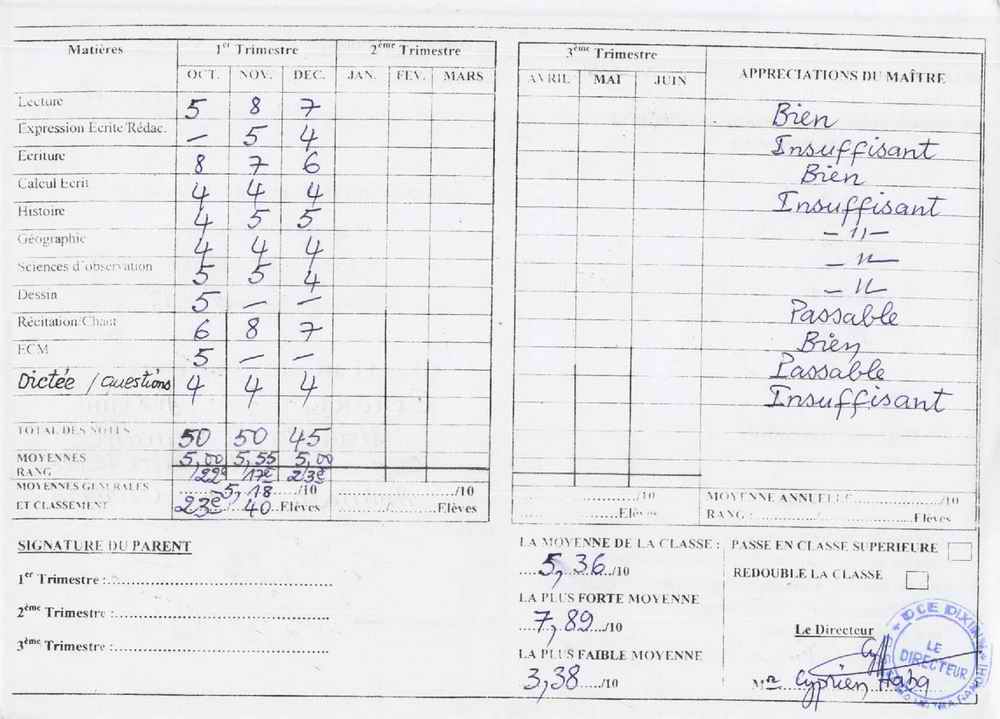 Matières 1er Trimestre 2ème Trimestre 3ème Trimestre APPRECIATIONS DU MAÎTRE
OCT. NOV. DEC. JAN. FEV. MARS AVRIL MAI JUIN
Lecture 5 8 7 Bien
Expression Ecrite/Rédac. — 5 4 Insuffisant
Ecriture 8 7 6 Bien
Calcul Ecrit 4 4 4 Insuffisant
Histoire 4 5 5 — 11 —
Géographie 4 4 4 — 11 —
Sciences d'observation 5 5 4 — 11 —
Dessin 5 — — Passable
Récitation/Chant 6 8 7 Bien
ECM 5 — — Passable
Dictée / Questions 4 4 4 Insuffisant
TOTAL DES NOTES 50 50 45
MOYENNES 5,00 5,55 5,00
RANG 22e 17e 23e
MOYENNES GENERALES 5,18 /10 /10 /10 MOYENNE ANNUELLE /10
ET CLASSEMENT 23e / 40 Elèves / Elèves Elèves RANG : Elèves
SIGNATURE DU PARENT
1er Trimestre :
2ème Trimestre :
3ème Trimestre :
LA MOYENNE DE LA CLASSE :
5,36 /10
LA PLUS FORTE MOYENNE
7,89 /10
LA PLUS FAIBLE MOYENNE
3,38 /10
PASSE EN CLASSE SUPERIEURE
REDOUBLE LA CLASSE
Le Directeur
Mr Cyprien
LE
DIRECTEUR